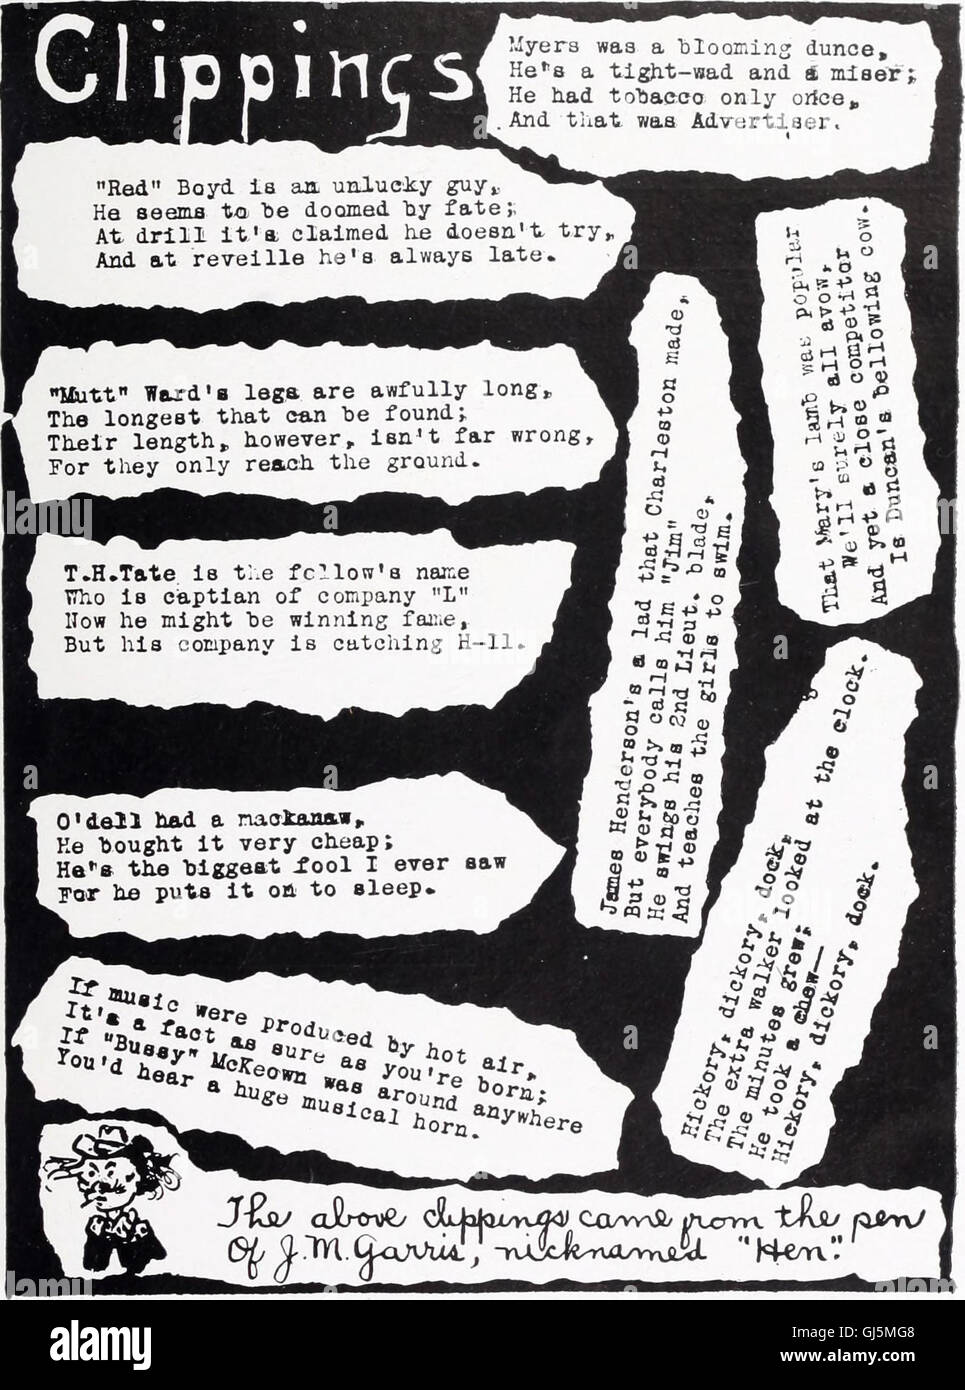 Clippings
Myers was a blooming dunce,
He's a tight-wad and a miser;
He had tobacco only once,
And that was Advertiser.
"Red" Boyd is an unlucky guy,
He seems to be doomed by fate;
At drill it's claimed he doesn't try,
And at reveille he's always late.
"Mutt" Ward's legs are awfully long,
The longest that can be found;
Their length, however, isn't far wrong,
For they only reach the ground.
T.H.Tate is the fellow's name
Who is captian of company "L"
Now he might be winning fame,
But his company is catching H-ll.
O'dell had a mackanaw,
He bought it very cheap;
He's the biggest fool I ever saw
For he puts it on to sleep.
If music were produced by hot air,
It's a fact as sure as you're born;
If "Bussy" McKeown was around anywhere
You'd hear a huge musical horn.
James Henderson's a lad that Charleston made,
But everybody calls him "Jim"
He swings his 2nd Lieut. blade,
And teaches the girls to swim.
That Mary's lamb was popular
We'll surely all avow,
And yet a close competitor
Is Duncan's bellowing cow.
Hickory, dickory, dock,
The extra walker looked at the clock.
The minutes grew,
He took a chew—
Hickory, dickory, dock.
The above clippings came from the pen
Of J.M. Garris, nicknamed "Hen".
alamy
alamy stock photo
GJ5MG8
www.alamy.com